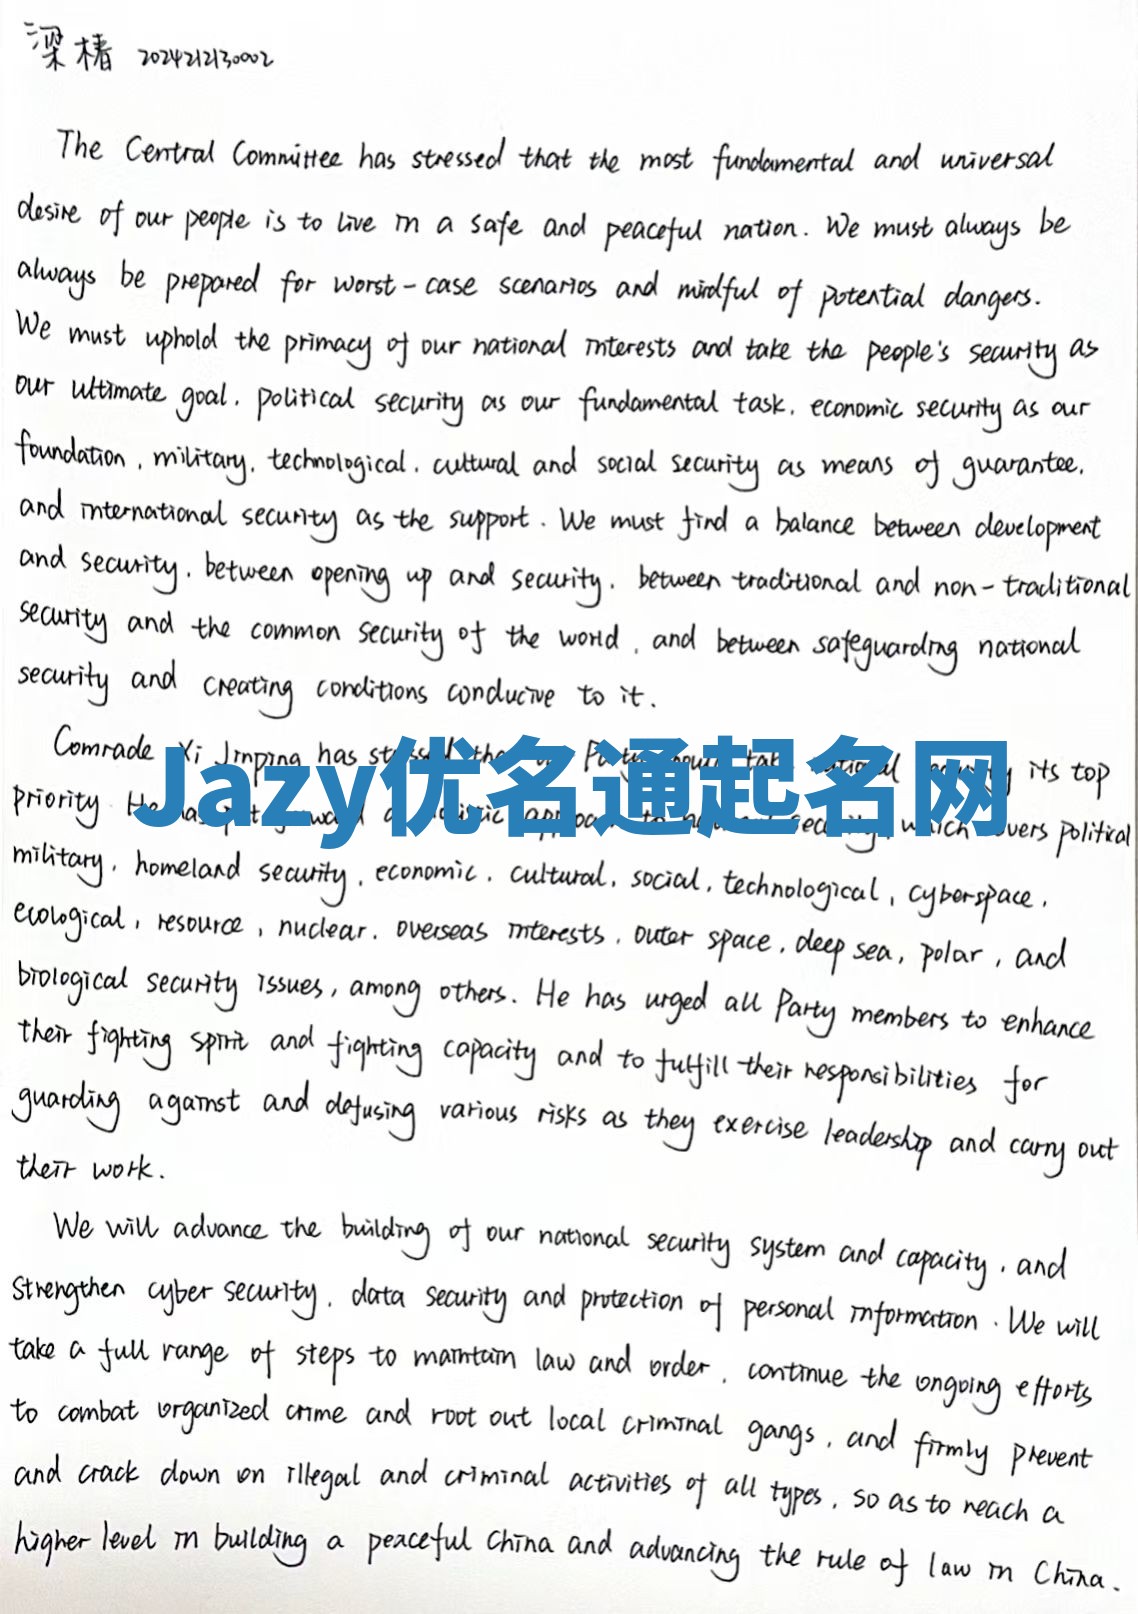 梁椿 2024212130002
The Central Committee has stressed that the most fundamental and universal
desire of our people is to live in a safe and peaceful nation. We must always be
always be prepared for worst-case scenarios and mindful of potential dangers.
We must uphold the primacy of our national interests and take the people's security as
our ultimate goal, political security as our fundamental task, economic security as our
foundation, military, technological, cultural and social security as means of guarantee,
and international security as the support. We must find a balance between development
and security, between opening up and security, between traditional and non-traditional
security and the common security of the world, and between safeguarding national
security and creating conditions conducive to it.
Comrade Xi Jinping has stressed its top
Jazy优名通起名网
priority. He which political
military, homeland security, economic, cultural, social, technological, cyberspace,
ecological, resource, nuclear, overseas interests, outer space, deep sea, polar, and
biological security issues, among others. He has urged all Party members to enhance
their fighting spirit and fighting capacity and to fulfill their responsibilities for
guarding against and defusing various risks as they exercise leadership and carry out
their work.
We will advance the building of our national security system and capacity, and
strengthen cyber security, data security and protection of personal information. We will
take a full range of steps to maintain law and order, continue the ongoing efforts
to combat organized crime and root out local criminal gangs, and firmly prevent
and crack down on illegal and criminal activities of all types, so as to reach a
higher level in building a peaceful China and advancing the rule of law in China.